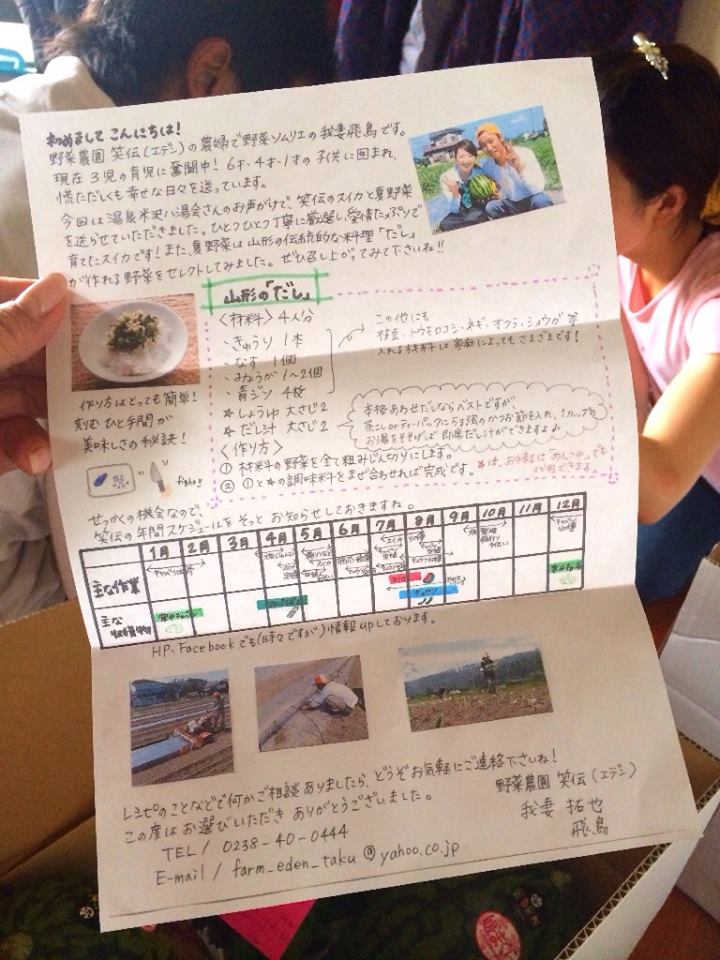 初めまして こんにちは！
野菜農園 笑伝(エデン)の農婦で野菜ソムリエの我妻飛鳥です。
現在 3児の育児に奮闘中！ 6才・4才・1才の子供に囲まれ、
慌ただしくも幸せな日々を送っています。
今回は湯長米沢八湯会さんのお声がけで、笑伝のスイカと夏野菜
を送らせていただきました。ひとつひとつ丁寧に厳選し、愛情たっぷりで
育てたスイカです！また、夏野菜は山形の伝統的な料理「だし」
が作れる野菜をセレクトしてみました。ぜひ召し上がってみて下さいね!!
山形の「だし」
〈材料〉4人分
・きゅうり 1本
・なす 1個
・みょうが 1〜2個
・青ジソ 4枚
★しょうゆ 大さじ2
★だし汁 大さじ2
この他にも
枝豆、トウモロコシ、ネギ、オクラ、ショウガ 等
入れる材料は家庭によってもさまざまです！
本格あわせだしならベストですが、
茶こしorティーパックに5g強のかつお節を入れ、1カップの
お湯をそそげば 即席だし汁ができますよ♪
〈作り方〉
① 材料の野菜を全て粗みじん切りにします。
② ①と★の調味料をまぜ合わせれば完成です。
★は、お手軽に「めんつゆ」でも
代用できます。
作り方はとっても簡単！
刻むひと手間が
美味しさの秘訣！
fight!!
せっかくの機会なので、
笑伝の年間スケジュールをそっとお知らせしておきますね。
1月 2月 3月 4月 5月 6月 7月 8月 9月 10月 11月 12月
主な作業
主な収穫物
HP、Facebookでも(時々ですが)情報upしております。
レシピのことなどで何かご相談ありましたら、どうぞお気軽にご連絡下さいね！
この度はお選びいただき ありがとうございました。
野菜農園 笑伝(エデン)
我妻 拓也
飛鳥
TEL / 0238-40-0444
E-mail / farm_eden_taku@yahoo.co.jp